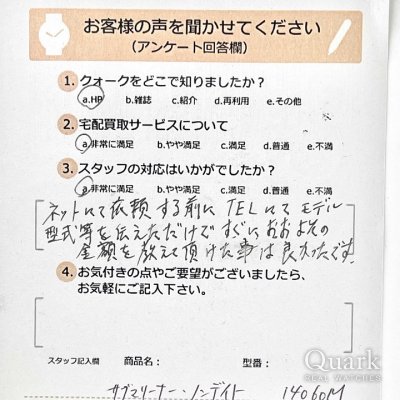 お客様の声を聞かせてください
(アンケート回答欄)
1. クォークをどこで知りましたか?
a.HP b.雑誌 c.紹介 d.再利用 e.その他
2. 宅配買取サービスについて
a.非常に満足 b.やや満足 c.満足 d.普通 e.不満
3. スタッフの対応はいかがでしたか?
a.非常に満足 b.やや満足 c.満足 d.普通 e.不満
ネットにて依頼する前にTELにてモデル
型式等を伝えただけですぐにおおよその
金額を教えて頂けた事は良かったです。
4. お気付きの点やご要望がございましたら、
お気軽にご記入下さい。
スタッフ記入欄 商品名: 型番:
サブマリーナー・ノンデイト 14060M
Quark
REAL WATCHES